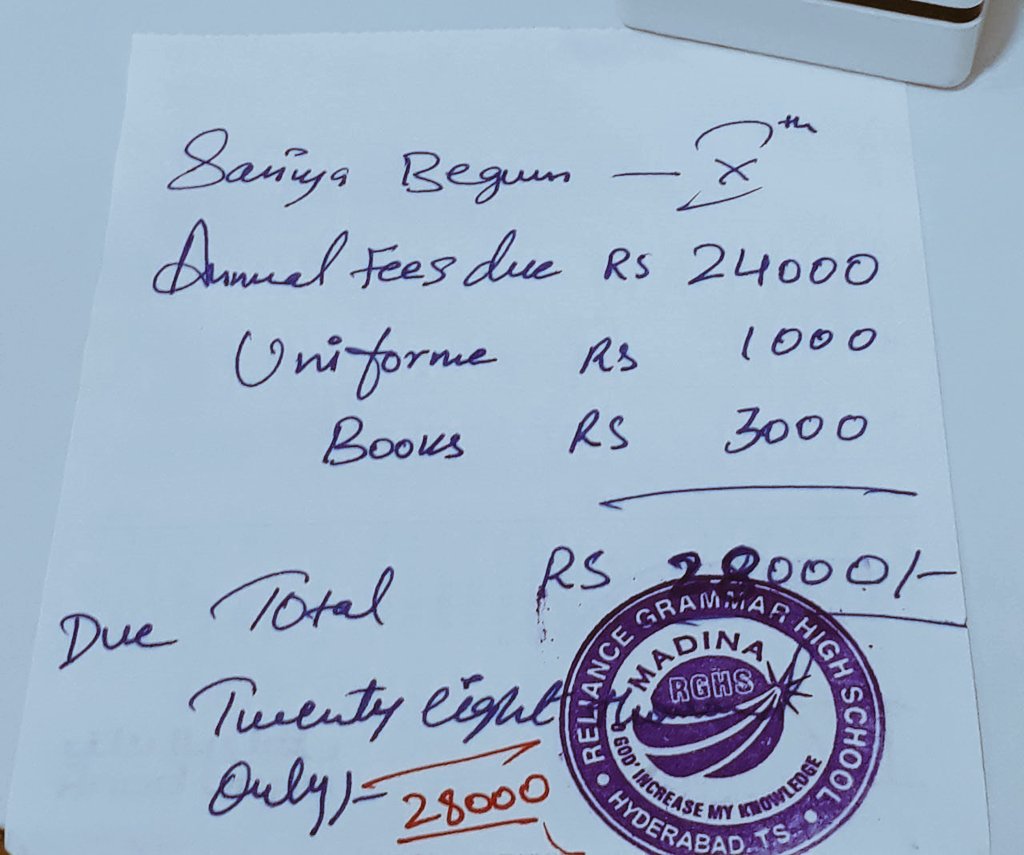 Saniya Begum — X th
Annual Fees due RS 24000
Uniforme RS 1000
Books RS 3000
Due Total RS 28000/-
Twenty eight
Only/= 28000
RELIANCE GRAMMAR HIGH SCHOOL
MADINA
RGHS
O GOD' INCREASE MY KNOWLEDGE
HYDERABAD. TS